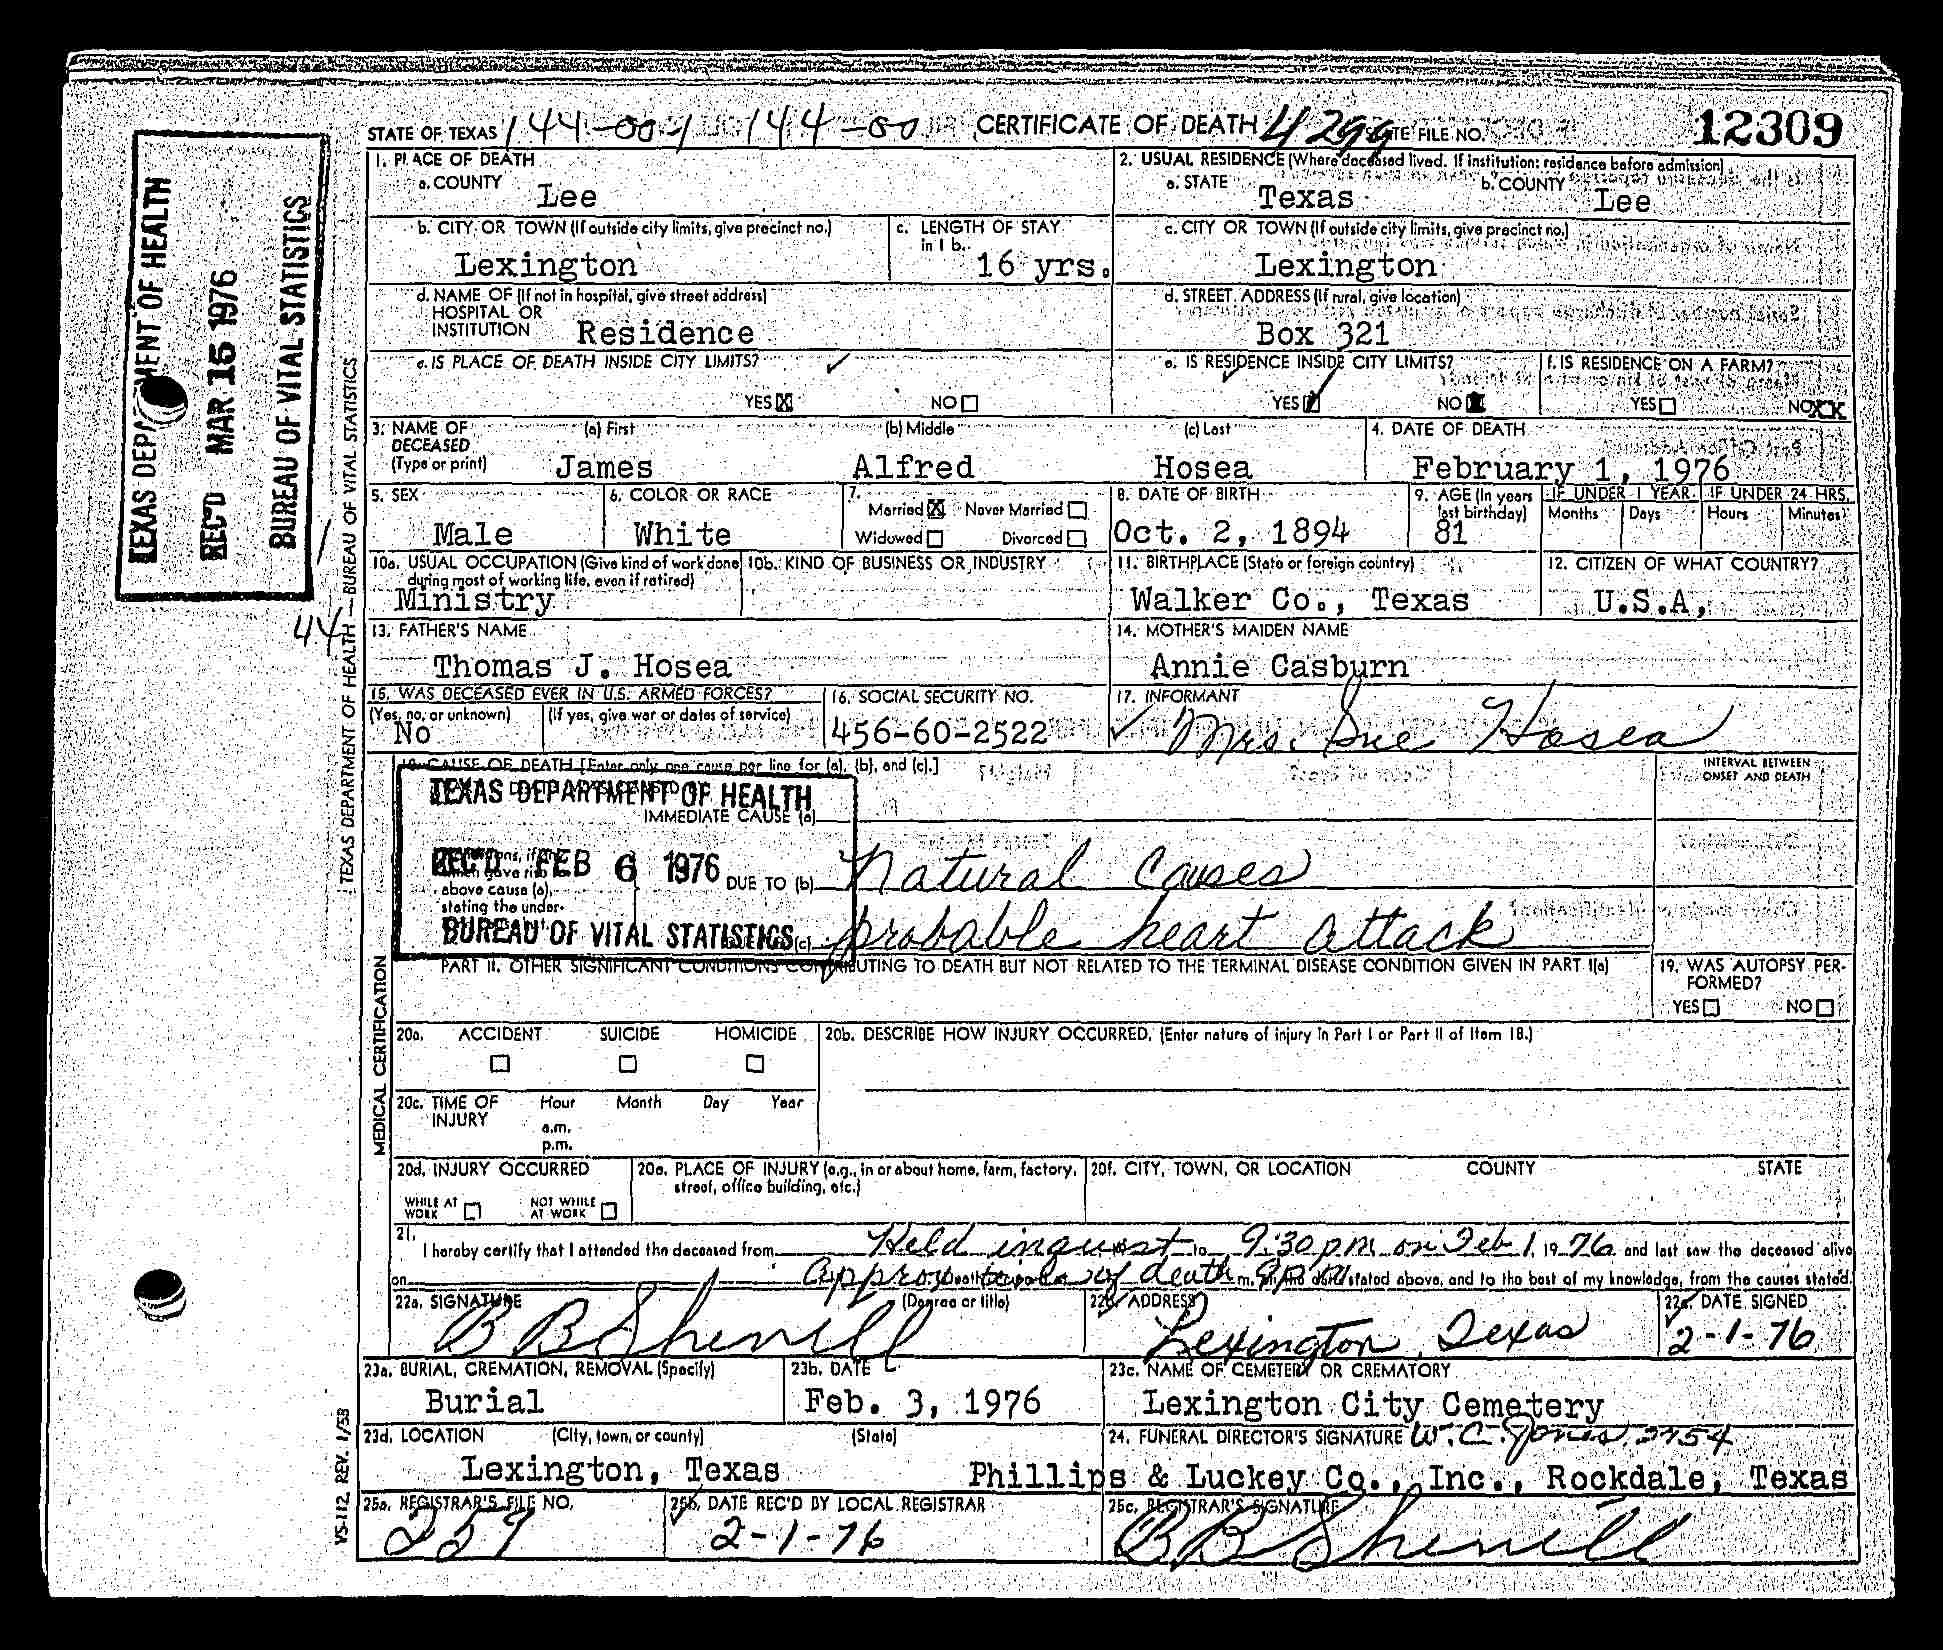 STATE OF TEXAS 144-00-1 144-00 CERTIFICATE OF DEATH STATE FILE NO. 12309
1. PLACE OF DEATH
a. COUNTY
Lee
2. USUAL RESIDENCE (Where deceased lived. If institution: residence before admission)
a. STATE b. COUNTY
Texas Lee
b. CITY OR TOWN (If outside city limits, give precinct no.)
Lexington
c. LENGTH OF STAY
in 1 b.
16 yrs.
c. CITY OR TOWN (If outside city limits, give precinct no.)
Lexington
d. NAME OF (If not in hospital, give street address)
HOSPITAL OR
INSTITUTION Residence
d. STREET ADDRESS (If rural, give location)
Box 321
e. IS PLACE OF DEATH INSIDE CITY LIMITS?
YES X NO
e. IS RESIDENCE INSIDE CITY LIMITS?
YES NO
f. IS RESIDENCE ON A FARM?
YES NO XX
3. NAME OF
DECEASED
(Type or print)
(a) First (b) Middle (c) Last
James Alfred Hosea
4. DATE OF DEATH
February 1, 1976
5. SEX
Male
6. COLOR OR RACE
White
7.
Married X Never Married
Widowed Divorced
8. DATE OF BIRTH
Oct. 2, 1894
9. AGE (In years
last birthday)
81
IF UNDER 1 YEAR IF UNDER 24 HRS.
Months Days Hours Minutes
10a. USUAL OCCUPATION (Give kind of work done
during most of working life, even if retired)
Ministry
10b. KIND OF BUSINESS OR INDUSTRY
11. BIRTHPLACE (State or foreign country)
Walker Co., Texas
12. CITIZEN OF WHAT COUNTRY?
U.S.A.
13. FATHER'S NAME
Thomas J. Hosea
14. MOTHER'S MAIDEN NAME
Annie Casburn
15. WAS DECEASED EVER IN U.S. ARMED FORCES?
(Yes, no, or unknown) (If yes, give war or dates of service)
No
16. SOCIAL SECURITY NO.
456-60-2522
17. INFORMANT
Mrs. Sue Hosea
18. CAUSE OF DEATH [Enter only one cause per line for (a), (b), and (c).]
INTERVAL BETWEEN
ONSET AND DEATH
TEXAS DEPARTMENT OF HEALTH
IMMEDIATE CAUSE (a)
REC'D FEB 6 1976
above cause (a),
stating the under-
DUE TO (b) Natural Causes
BUREAU OF VITAL STATISTICS
(c) probable heart attack
PART II. OTHER SIGNIFICANT CONDITIONS CONTRIBUTING TO DEATH BUT NOT RELATED TO THE TERMINAL DISEASE CONDITION GIVEN IN PART I(a)
19. WAS AUTOPSY PER-
FORMED?
YES NO
20a. ACCIDENT SUICIDE HOMICIDE
20b. DESCRIBE HOW INJURY OCCURRED. (Enter nature of injury in Part I or Part II of Item 18.)
20c. TIME OF
INJURY
Hour Month Day Year
a.m.
p.m.
20d. INJURY OCCURRED
WHILE AT
WORK
NOT WHILE
AT WORK
20e. PLACE OF INJURY (e.g., in or about home, farm, factory,
street, office building, etc.)
20f. CITY, TOWN, OR LOCATION COUNTY STATE
21.
I hereby certify that I attended the deceased from Held inquest to 9:30 pm on Feb 1, 1976 and last saw the deceased alive
on Approx time of death 9 pm stated above, and to the best of my knowledge, from the causes stated.
22a. SIGNATURE (Degree or title)
B B Sherrill
22b. ADDRESS
Lexington, Texas
22c. DATE SIGNED
2-1-76
23a. BURIAL, CREMATION, REMOVAL (Specify)
Burial
23b. DATE
Feb. 3, 1976
23c. NAME OF CEMETERY OR CREMATORY
Lexington City Cemetery
23d. LOCATION (City, town, or county) (State)
Lexington, Texas
24. FUNERAL DIRECTOR'S SIGNATURE W. C. Jones 2754
Phillips & Luckey Co., Inc., Rockdale, Texas
25a. REGISTRAR'S FILE NO.
259
25b. DATE REC'D BY LOCAL REGISTRAR
2-1-76
25c. REGISTRAR'S SIGNATURE
B B Sherrill
TEXAS DEPARTMENT OF HEALTH
REC'D MAR 15 1976
BUREAU OF VITAL STATISTICS
44
TEXAS DEPARTMENT OF HEALTH — BUREAU OF VITAL STATISTICS
MEDICAL CERTIFICATION
VS-112 REV. 1/58